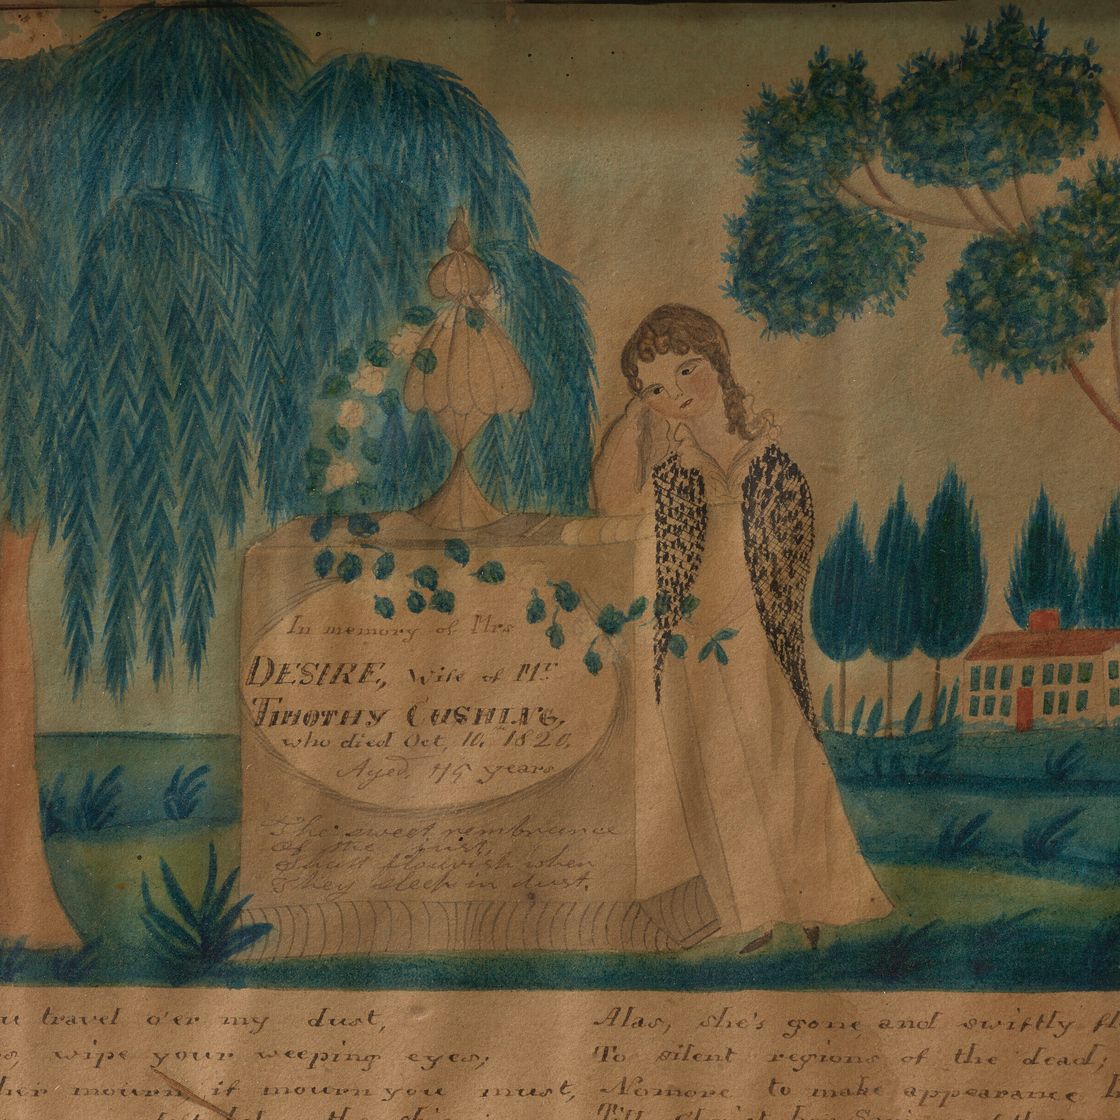 In memory of Mrs
DESIRE, Wife of Mr
TIMOTHY CUSHING,
who died Oct, 10, 1820,
Aged 45 years
The sweet remembrance
Of the just,
Shall flourish when
They sleep in dust.
travel o'er my dust,
wipe your weeping eyes;
mourn, if mourn you must,
the
Alas, she's gone and swiftly
To silent regions of the dead;
Nomore to make appearance
Till Christ